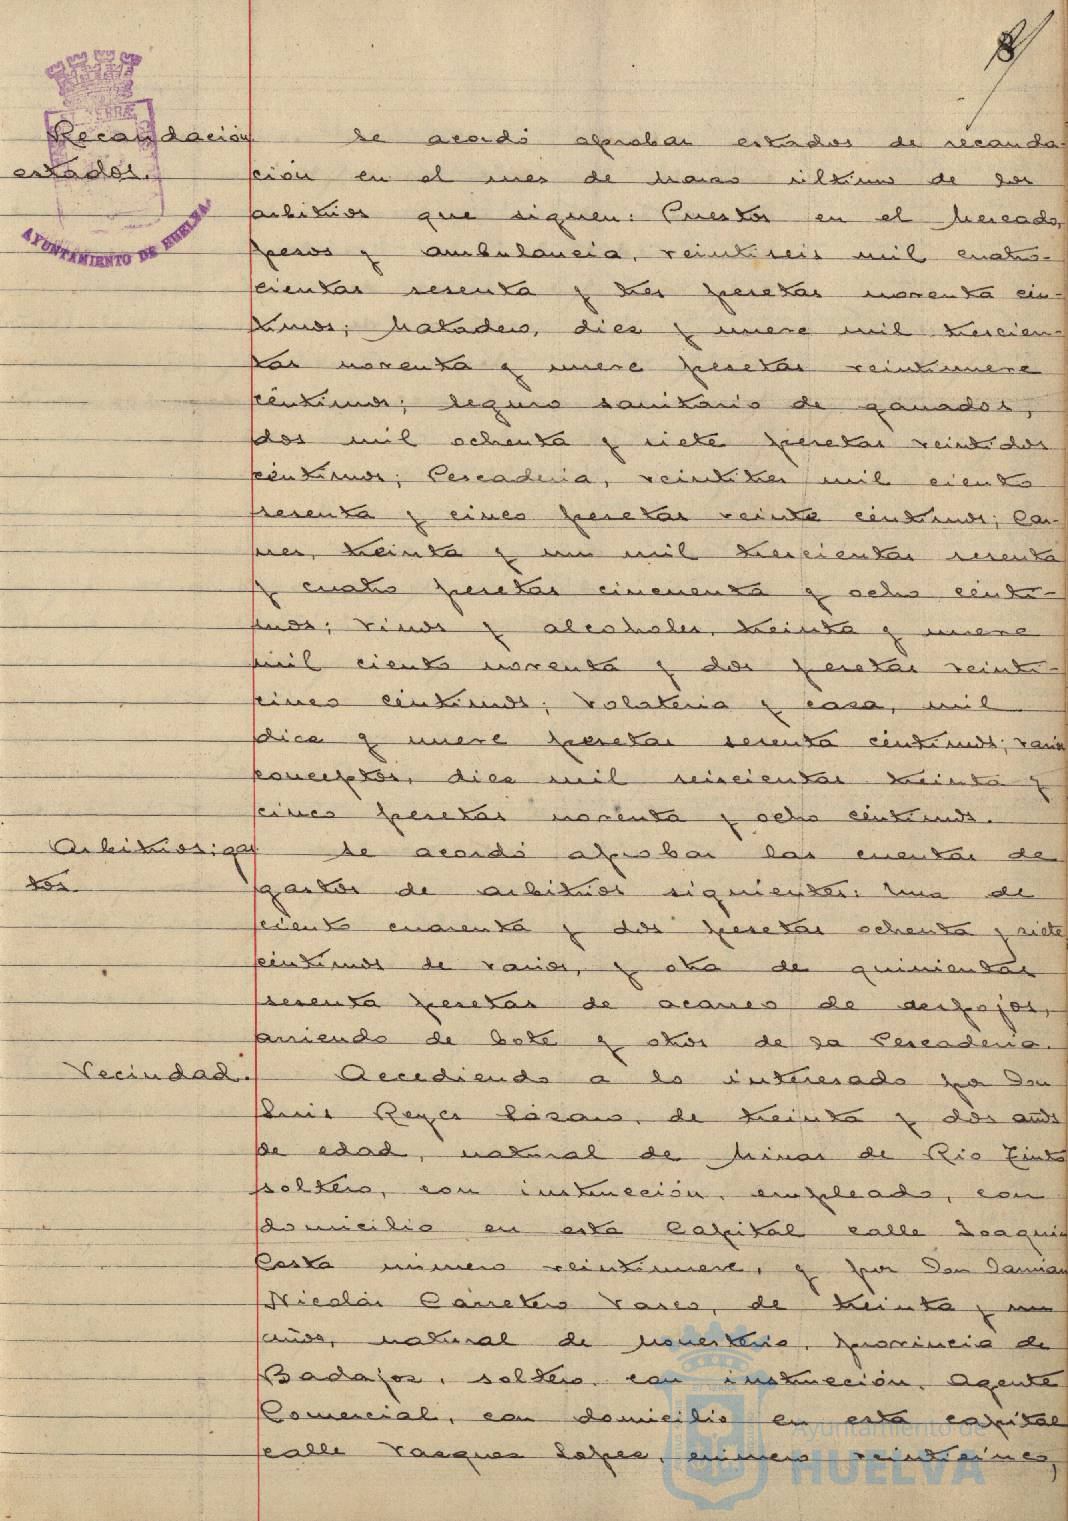 8
AYUNTAMIENTO DE HUELVA
Recaudación
estados.
Se acordó aprobar estados de recauda-
ción en el mes de Marzo último de los
arbitrios que siguen: Puestos en el Mercado,
pesos y ambulancia, veintiseis mil cuatro-
cientas sesenta y tres pesetas noventa cén-
timos; Matadero, diez y nueve mil trescien-
tas noventa y nueve pesetas veintinueve
céntimos; Seguro sanitario de ganados,
dos mil ochenta y siete pesetas veintidos
céntimos; Pescaderia, veintitres mil ciento
sesenta y cinco pesetas veinte céntimos; Car-
nes, treinta y un mil trescientas sesenta
y cuatro pesetas cincuenta y ocho cénti-
mos; Vinos y alcoholes, treinta y nueve
mil ciento noventa y dos pesetas veinti-
cinco céntimos; Volateria y caza, mil
diez y nueve pesetas sesenta céntimos; varios
conceptos, diez mil seiscientas treinta y
cinco pesetas noventa y ocho céntimos.
Arbitrios; gas
tos.
Se acordó aprobar las cuentas de
gastos de arbitrios siguientes: Una de
ciento cuarenta y dos pesetas ochenta y siete
céntimos de varios, y otra de quinientas
sesenta pesetas de acarreo de despojos,
arriendo de bote y otros de la Pescaderia.
Vecindad.
Accediendo a lo interesado por Don
Luis Reyes Lázaro, de treinta y dos años
de edad, natural de Minas de Rio Tinto
soltero, con instrucción, empleado, con
domicilio en esta Capital calle Joaquin
Costa número veintinueve, y por Don Damian
Nicolás Carretero Vasco, de treinta y un
años, natural de Monesterio, provincia de
Badajoz, soltero, con instrucción, Agente
Comercial, con domicilio en esta capital
calle Vazquez Lopez, número veinticinco,
Ayuntamiento de
HUELVA